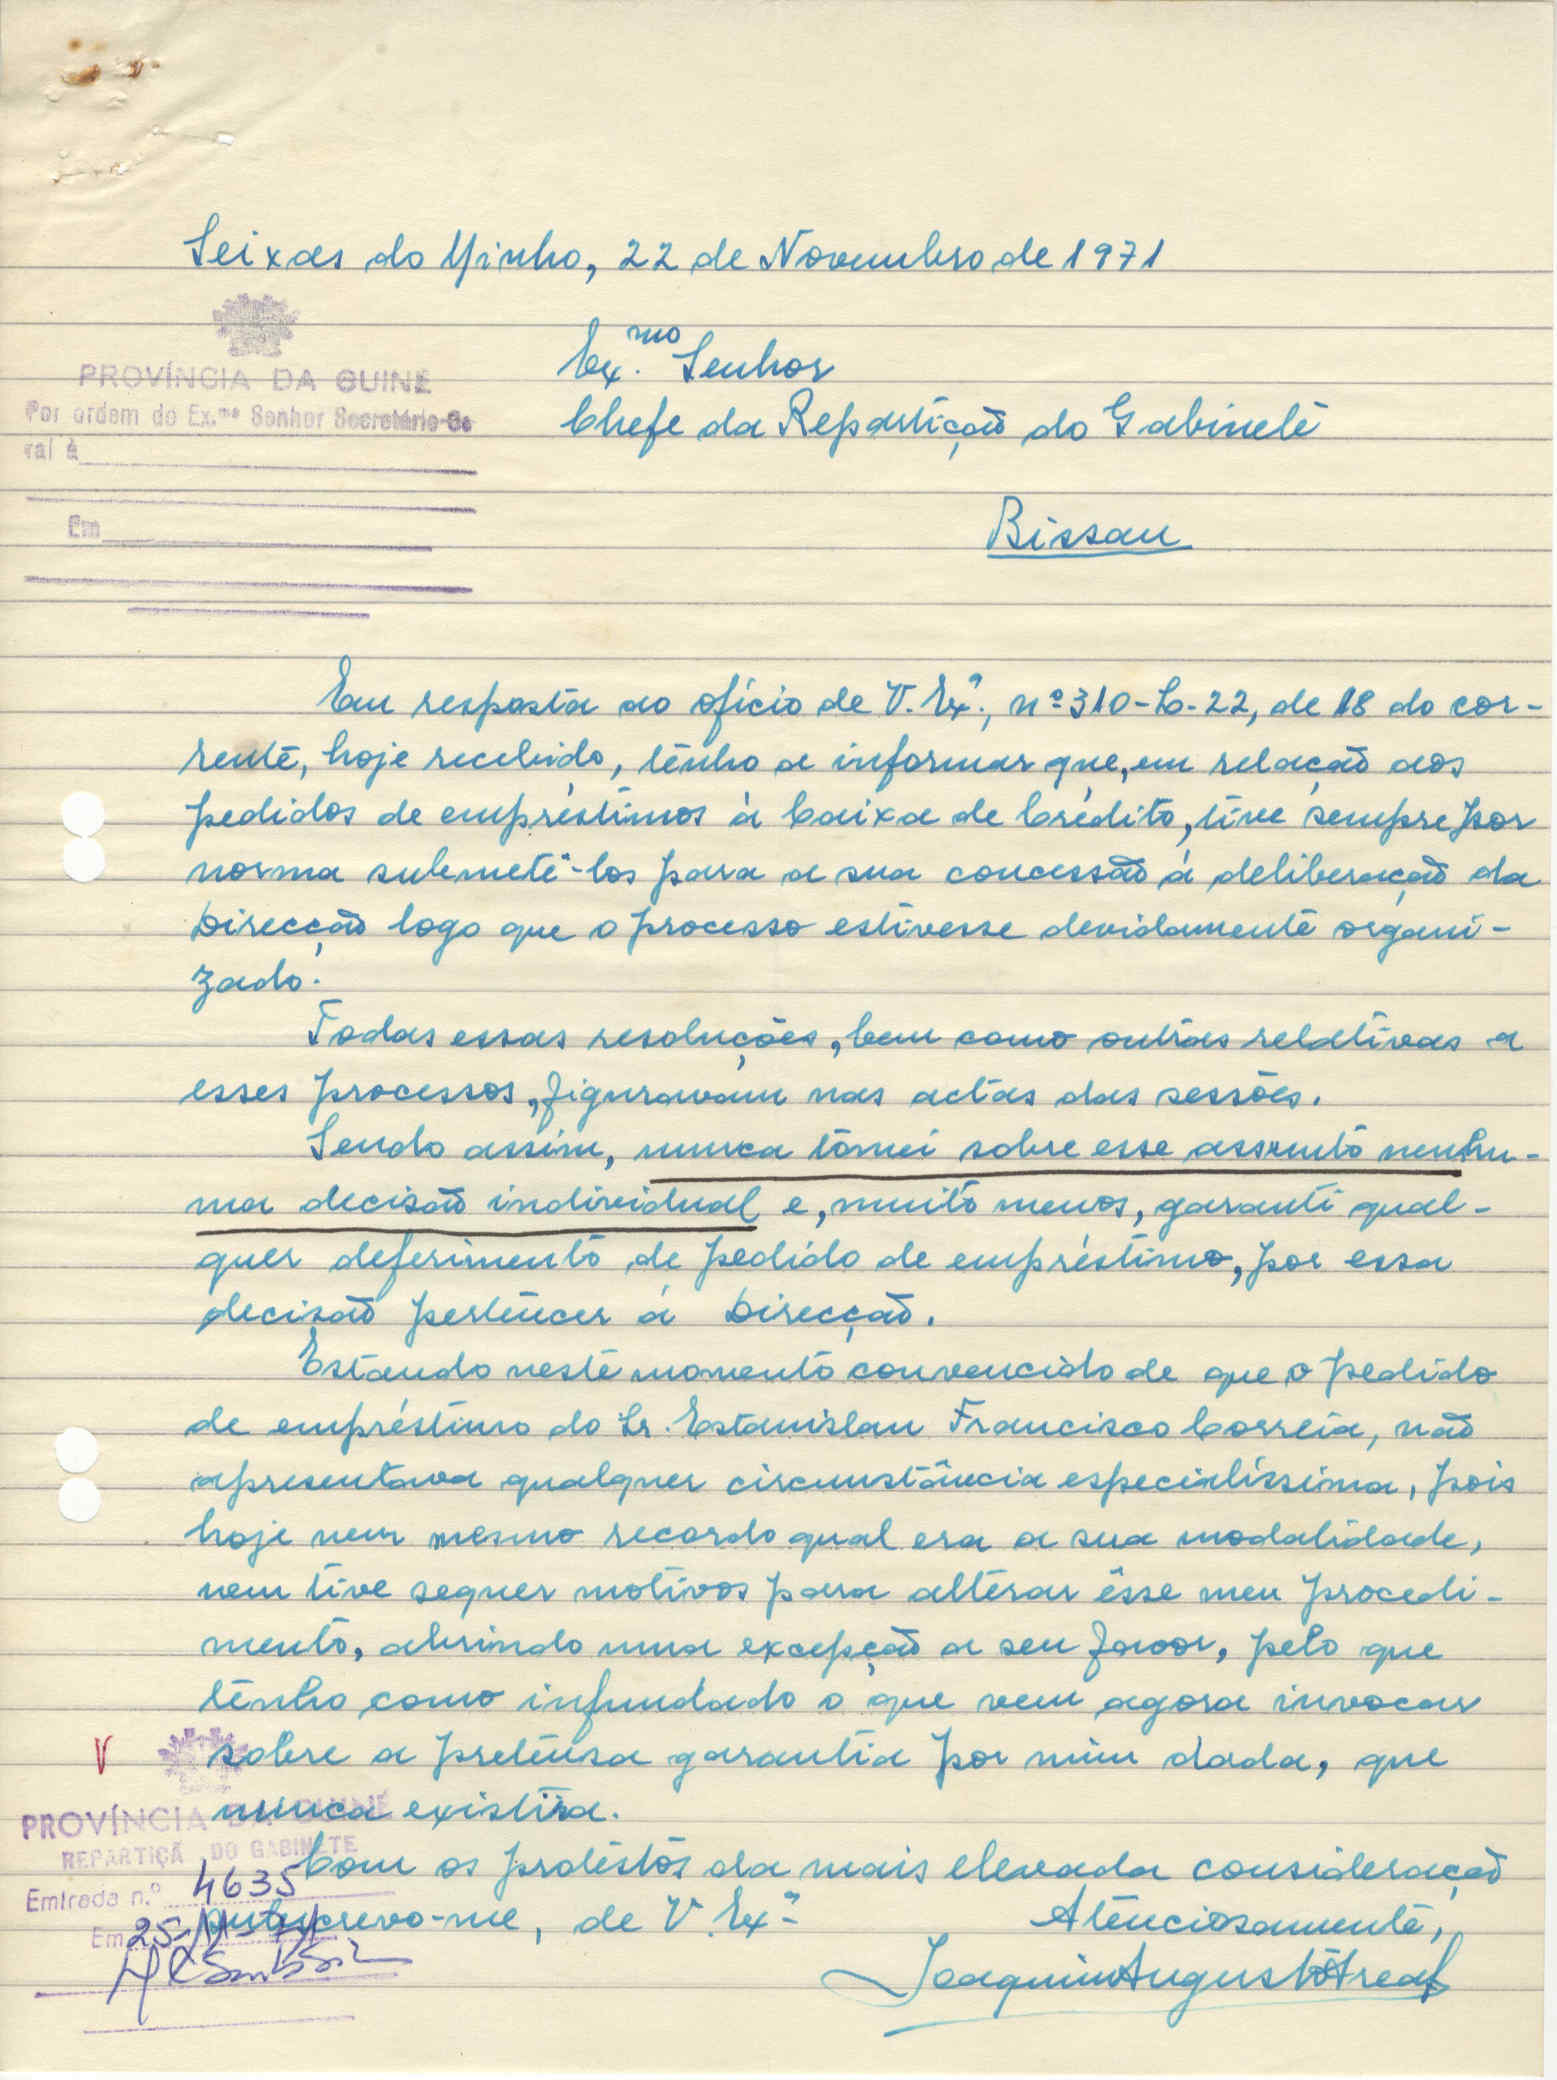 Seixas do Minho, 22 de Novembro de 1971
PROVÍNCIA DA GUINÉ
Por ordem do Ex.mo Senhor Secretário-Ge
ral à
Em
Ex.mo Senhor
Chefe da Repartição do Gabinete
Bissau
Em resposta ao ofício de V. Ex.ª, nº 310-C-22, de 18 do cor-
rente, hoje recebido, tenho a informar que, em relação aos
pedidos de empréstimos à Caixa de Crédito, tive sempre por
norma submetê-los para a sua concessão á deliberação da
Direcção logo que o processo estivesse devidamente organi-
zado.
Todas essas resoluções, bem como outras relativas a
esses processos, figuravam nas actas das sessões.
Sendo assim, nunca tomei sobre esse assunto nenhu-
ma decisão individual e, muito menos, garanti qual-
quer deferimento de pedido de empréstimo, por essa
decisão pertencer á Direcção.
Estando neste momento convencido de que o pedido
de empréstimo do Sr. Estanislau Francisco Correia, não
apresentava qualquer circunstância especialíssima, pois
hoje nem mesmo recordo qual era a sua modalidade,
nem tive sequer motivos para alterar êsse meu procedi-
mento, abrindo uma excepção a seu favor, pelo que
tenho como infundado o que vem agora invocar
sobre a pretensa garantia por mim dada, que
nunca existira.
Com os protestos da mais elevada consideração
subscrevo-me, de V. Ex.ª
Atenciosamente,
Joaquim Augusto Areal
V
PROVÍNCIA DA GUINÉ
REPARTIÇÃ DO GABINETE
Entrada n.º 4635
Em 25-11-71